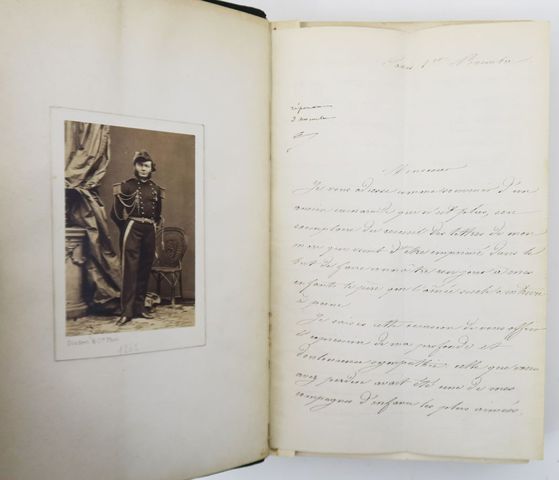 Disdéri & Cie Phot.
1862
Paris 1er Novembre
réponse
3 novembre
Monsieur
Je vous adresse comme souvenir d'un
ancien camarade qui n'est plus, un
exemplaire du recueil des lettres de mon
mari qui vient d'être imprimé dans le
but de faire connaître un jour à mes
enfants le père que l'aînée seule a entrevu
à peine.
Je saisis cette occasion de vous offrir
l'expression de ma profonde et
douloureuse sympathie celle que vous
avez perdue avait été une de mes
compagnes d'enfance les plus aimées.